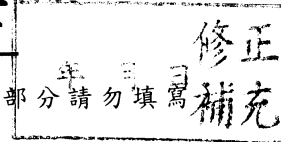 修正
年 月 日
部分請勿填寫
補充